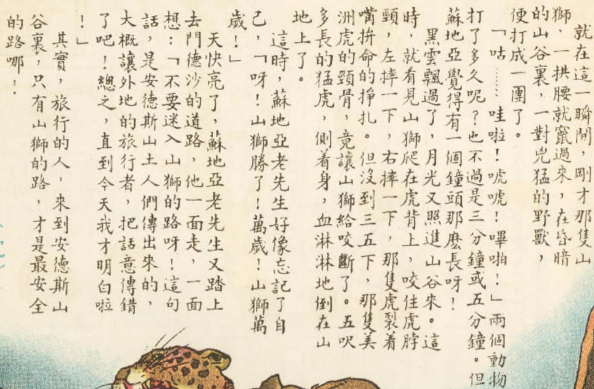 就在這一瞬間，剛才那隻山
獅，一拱腰就竄過來，在昏暗
的山谷裏，一對兇猛的野獸，
便打成一團了。
「咕……哇啦！唬唬！嗶啪！」兩個動物
打了多久呢？也不過是三分鐘或五分鐘。但
蘇地亞覺得有一個鐘頭那麼長呀！
黑雲飄過了，月光又照進山谷來。這
時，就看見山獅爬在虎背上，咬住虎脖
頸，左摔一下，右摔一下，那隻虎裂着
嘴拚命的掙扎。但沒到三五下，那隻美
洲虎的頸骨，竟讓山獅給咬斷了。五呎
多長的猛虎，側着身，血淋淋地倒在山
地上了。
這時，蘇地亞老先生好像忘記了自
己，「呀！山獅勝了！萬歲！山獅萬
歲！」
天快亮了，蘇地亞老先生又踏上
去門德沙的道路，他一面走，一面
想：「不要迷入山獅的路呀！這句
話，是安德斯山土人們傳出來的，
大概讓外地的旅行者，把話意傳錯
了吧！總之，直到今天我才明白啦
！」
其實，旅行的人，來到安德斯山
谷裏，只有山獅的路，才是最安全
的路哪！